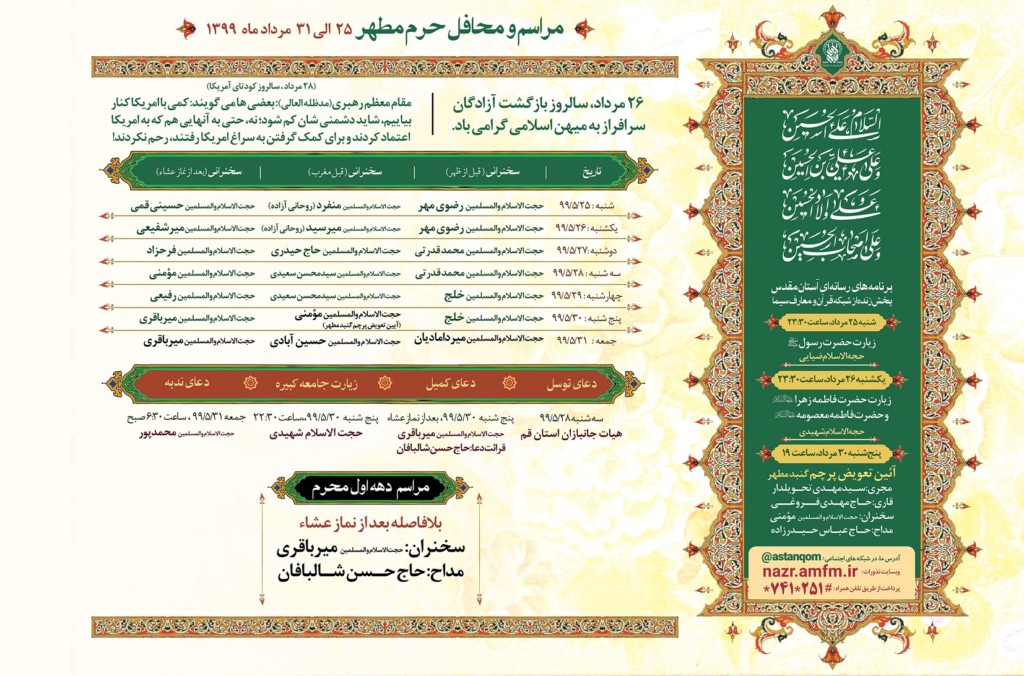 مراسم و محافل حرم مطهر ۲۵ الی ۳۱ مرداد ماه ۱۳۹۹
۲۶ مرداد، سالروز بازگشت آزادگان
سرافراز به میهن اسلامی گرامی باد.
(۲۸ مرداد، سالروز کودتای آمریکا)
مقام معظم رهبری (مدظله العالی): بعضی ها می گویند: کمی با امریکا کنار
بیاییم، شاید دشمنی شان کم شود؛ نه، حتی به آنهایی هم که به امریکا
اعتماد کردند و برای کمک گرفتن به سراغ امریکا رفتند، رحم نکردند!
تاریخ | سخنرانی (قبل از ظهر) | سخنرانی (قبل مغرب) | سخنرانی (بعد از نماز عشاء)
شنبه : ۹۹/۵/۲۵ حجت الاسلام والمسلمین رضوی مهر حجت الاسلام والمسلمین منفرد (روحانی آزاده) حجت الاسلام والمسلمین حسینی قمی
یکشنبه : ۹۹/۵/۲۶ حجت الاسلام والمسلمین رضوی مهر حجت الاسلام والمسلمین میرسید (روحانی آزاده) حجت الاسلام والمسلمین میرشفیعی
دوشنبه : ۹۹/۵/۲۷ حجت الاسلام والمسلمین محمد قدرتی حجت الاسلام والمسلمین حاج حیدری حجت الاسلام والمسلمین فرحزاد
سه شنبه : ۹۹/۵/۲۸ حجت الاسلام والمسلمین محمد قدرتی حجت الاسلام والمسلمین سیدمحسن سعیدی حجت الاسلام والمسلمین مؤمنی
چهارشنبه : ۹۹/۵/۲۹ حجت الاسلام والمسلمین خلج حجت الاسلام والمسلمین سیدمحسن سعیدی حجت الاسلام والمسلمین رفیعی
پنج شنبه : ۹۹/۵/۳۰ حجت الاسلام والمسلمین خلج حجت الاسلام والمسلمین مؤمنی حجت الاسلام والمسلمین میرباقری
(آیین تعویض پرچم گنبد مطهر)
جمعه : ۹۹/۵/۳۱ حجت الاسلام والمسلمین میردامادیان حجت الاسلام والمسلمین حسین آبادی حجت الاسلام والمسلمین میرباقری
دعای توسل دعای کمیل زیارت جامعه کبیره دعای ندبه
سه شنبه ۹۹/۵/۲۸
هیات جانبازان استان قم
پنج شنبه ۹۹/۵/۳۰، بعد از نماز عشاء
حجت الاسلام والمسلمین میرباقری
قرائت دعا: حاج حسن شالبافان
پنج شنبه ۹۹/۵/۳۰، ساعت ۲۲:۳۰
حجت الاسلام شهیدی
جمعه ۹۹/۵/۳۱، ساعت ۶:۳۰ صبح
حجت الاسلام والمسلمین محمدپور
مراسم دهه اول محرم
بلافاصله بعد از نماز عشاء
سخنران: حجت الاسلام والمسلمین میرباقری
مداح: حاج حسن شالبافان
السلام علی الحسین
و علی علی بن الحسین
و علی اولاد الحسین
و علی اصحاب الحسین
برنامه های رسانه ای آستان مقدس
پخش زنده از شبکه قرآن و معارف سیما
شنبه ۲۵ مرداد، ساعت ۲۳:۳۰
زیارت حضرت رسول ﷺ
حجه الاسلام ضیایی
یکشنبه ۲۶ مرداد، ساعت ۲۳:۳۰
زیارت حضرت فاطمه زهرا
و حضرت فاطمه معصومه
حجه الاسلام شهیدی
پنج شنبه ۳۰ مرداد، ساعت ۱۹
آئین تعویض پرچم گنبد مطهر
مجری: سیدمهدی تحویلدار
قاری: حاج مهدی فروغی
سخنران: حجت الاسلام والمسلمین مؤمنی
مداح: حاج عباس حیدرزاده
آدرس ما، در شبکه های اجتماعی: @astanqom
وبسایت نذورات: nazr.amfm.ir
پرداخت از طریق تلفن همراه: *۷۴۱*۲۵۱#